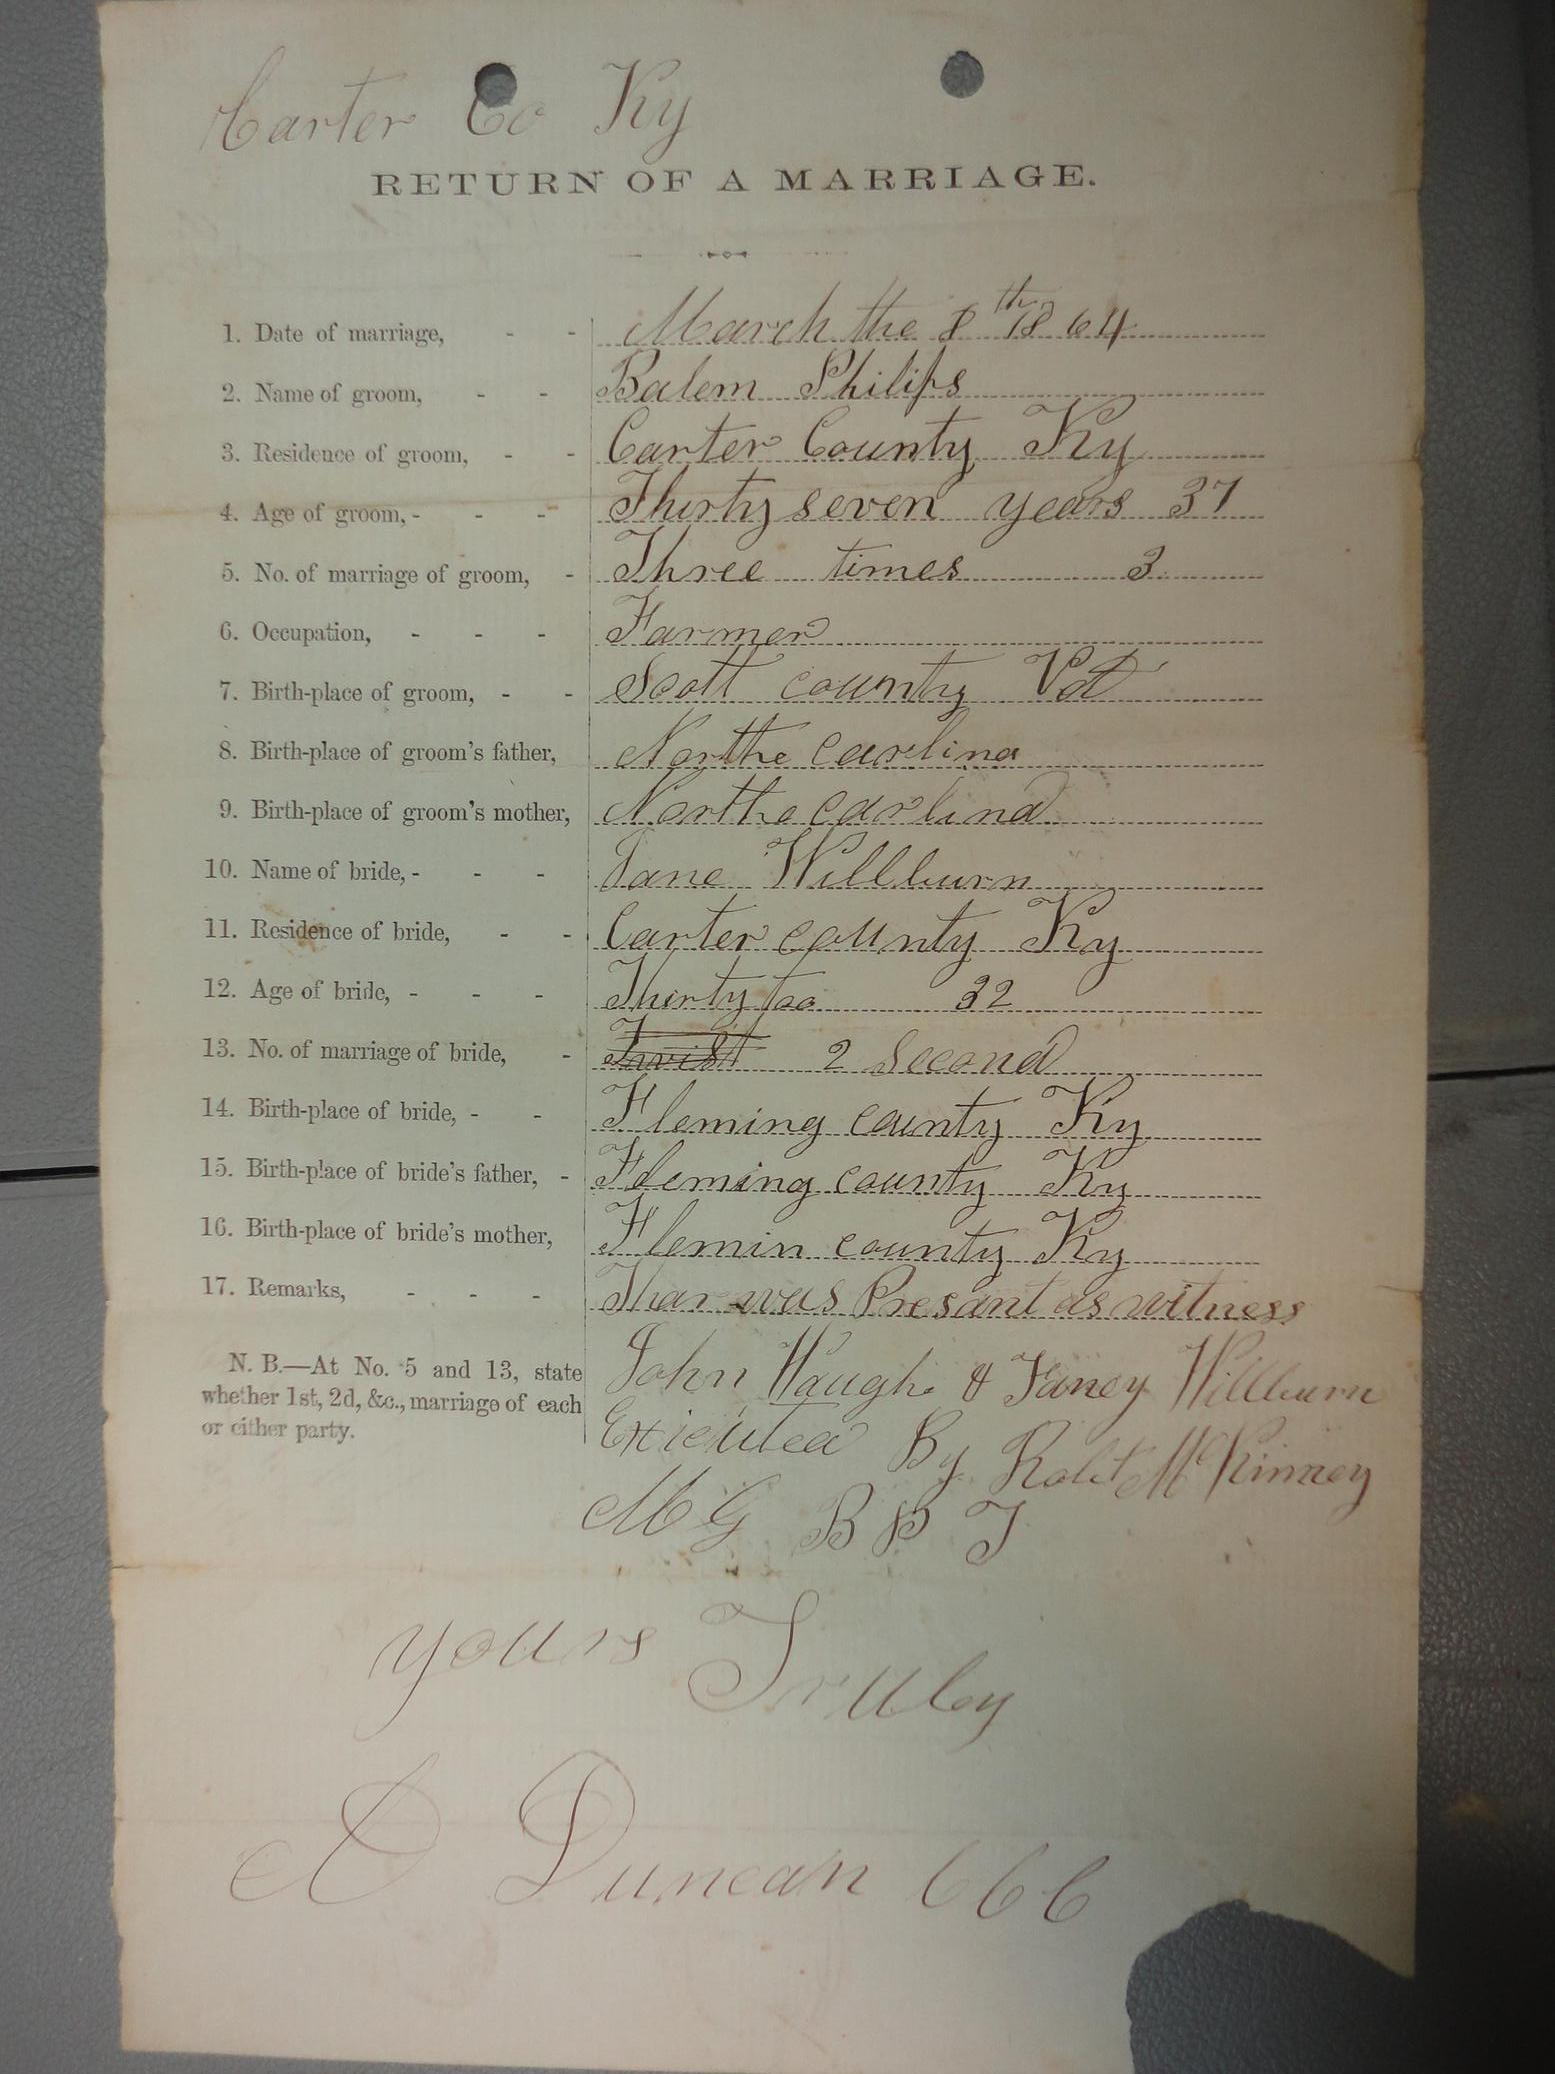 Carter Co Ky
RETURN OF A MARRIAGE.
1. Date of marriage, - - March the 8th 1864
2. Name of groom, - - Balem Philips
3. Residence of groom, - - Carter County Ky
4. Age of groom, - - - Thirty seven years 37
5. No. of marriage of groom, - Three times 3
6. Occupation, - - - Farmer
7. Birth-place of groom, - - Scott county Va
8. Birth-place of groom's father, Northe carlina
9. Birth-place of groom's mother, Northe carlina
10. Name of bride, - - - Jane Willburn
11. Residence of bride, - - Carter county Ky
12. Age of bride, - - - Thirty too 32
13. No. of marriage of bride, - 2 Second
14. Birth-place of bride, - - Fleming county Ky
15. Birth-place of bride's father, - Fleming county Ky
16. Birth-place of bride's mother, Flemin county Ky
17. Remarks, - - - Thar was Presant as witness
N. B.—At No. 5 and 13, state
whether 1st, 2d, &c., marriage of each
or either party.
John Waugh & Faney Willburn
Exicuted By Robt McKinney
M G B P J
yours Truley
A Duncan